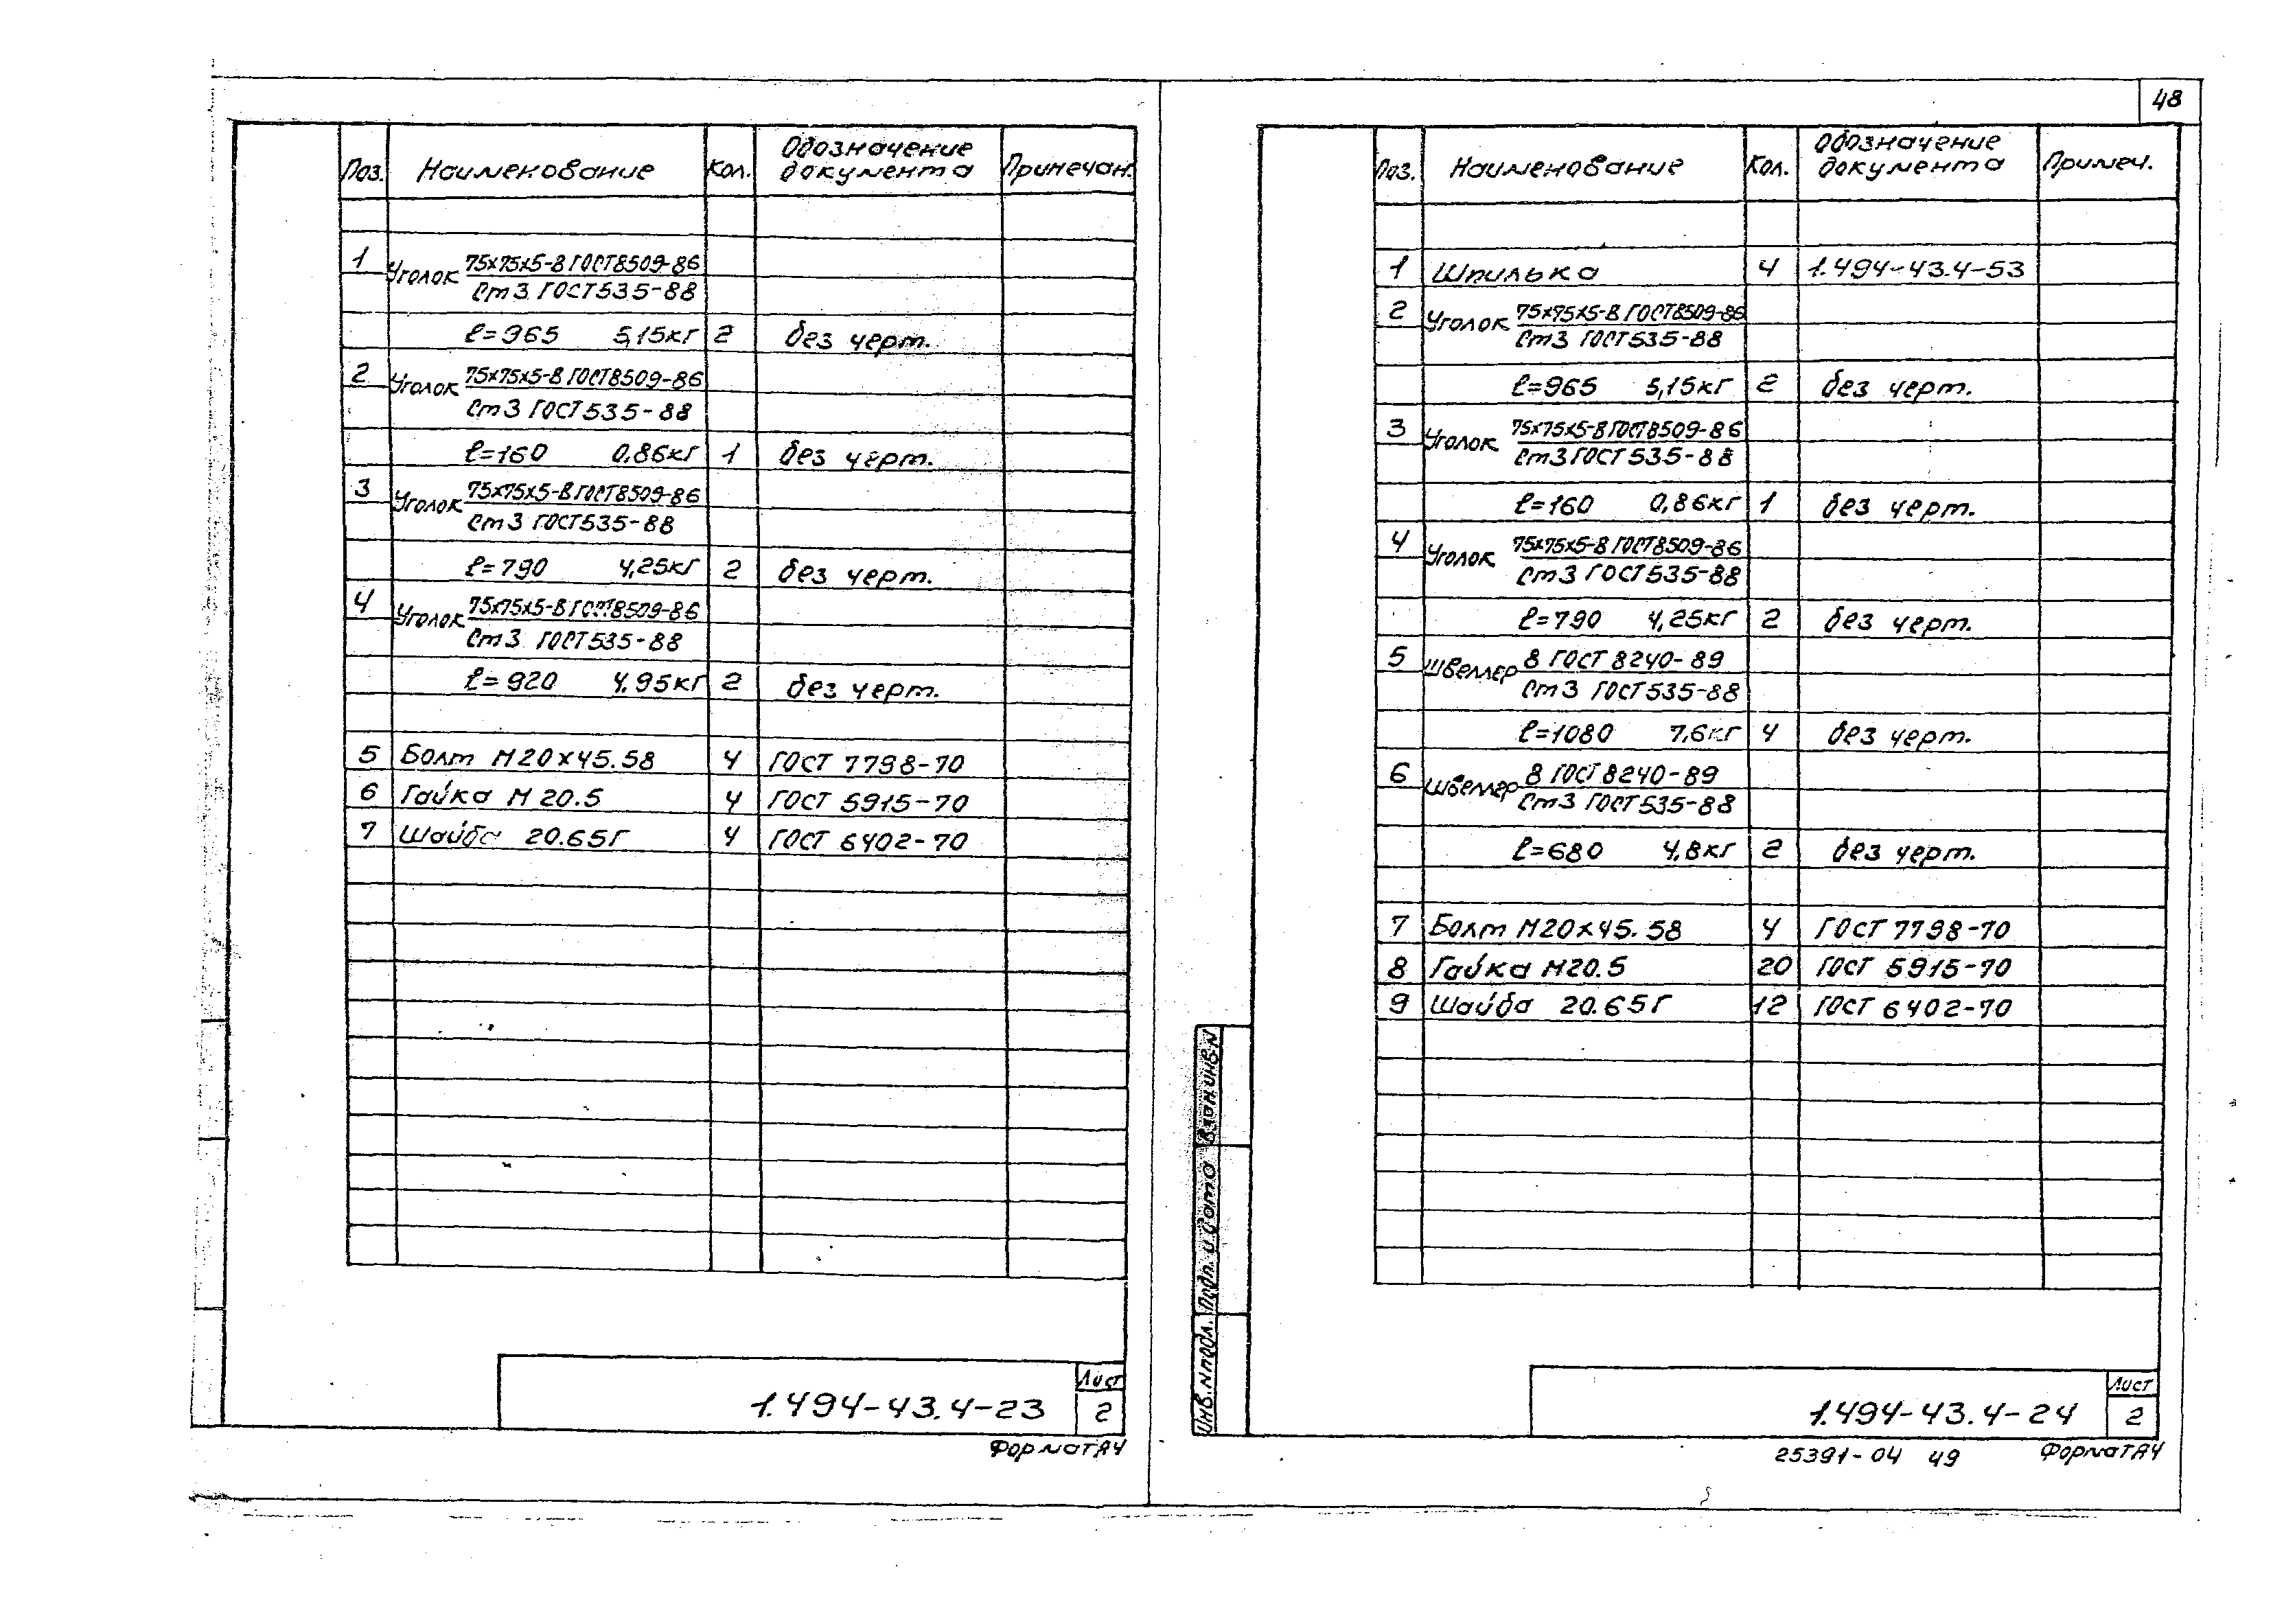 48
Поз. Наименование Кол. Обозначение документа Примечан.
1 Уголок 75х75х5-В ГОСТ8509-86
Ст3 ГОСТ535-88
ℓ=965 5,15кг 2 без черт.
2 Уголок 75х75х5-В ГОСТ8509-86
Ст3 ГОСТ535-88
ℓ=160 0,86кг 1 без черт.
3 Уголок 75х75х5-В ГОСТ8509-86
Ст3 ГОСТ535-88
ℓ=790 4,25кг 2 без черт.
4 Уголок 75х75х5-В ГОСТ8509-86
Ст3 ГОСТ535-88
ℓ=920 4.95кг 2 без черт.
5 Болт М20х45.58 4 ГОСТ 7798-70
6 Гайка М20.5 4 ГОСТ 5915-70
7 Шайба 20.65Г 4 ГОСТ 6402-70
1.494-43.4-23
Лист
2
Формат А4
Поз. Наименование Кол. Обозначение документа Примеч.
1 Шпилька 4 1.494-43.4-53
2 Уголок 75х75х5-В ГОСТ8509-86
Ст3 ГОСТ535-88
ℓ=965 5,15кг 2 без черт.
3 Уголок 75х75х5-В ГОСТ8509-86
Ст3 ГОСТ535-88
ℓ=160 0,86кг 1 без черт.
4 Уголок 75х75х5-В ГОСТ8509-86
Ст3 ГОСТ535-88
ℓ=790 4,25кг 2 без черт.
5 Швеллер 8 ГОСТ 8240-89
Ст3 ГОСТ535-88
ℓ=1080 7,6кг 4 без черт.
6 Швеллер 8 ГОСТ 8240-89
Ст3 ГОСТ535-88
ℓ=680 4,8кг 2 без черт.
7 Болт М20х45.58 4 ГОСТ 7798-70
8 Гайка М20.5 20 ГОСТ 5915-70
9 Шайба 20.65Г 12 ГОСТ 6402-70
Инв.Nподл. Подп. и дата Взам.инв.N
1.494-43.4-24
Лист
2
25391-04 49 Формат А4